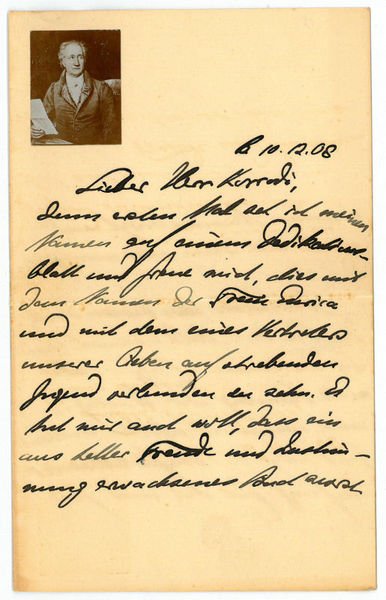 b 10.12.08
Lieber Herr Korrodi,
zum ersten Mal seh ich meinen
Namen auf einem Dedikations-
blatt und freue mich, dies mit
dem Namen der Frau
und mit dem eines Vertreters
unserer lieben aufstrebenden
Jugend verbunden zu sehn. Es
tut mir auch wohl, dass ein
aus heller Freude und Zustim-
mung erwachsenes Buch